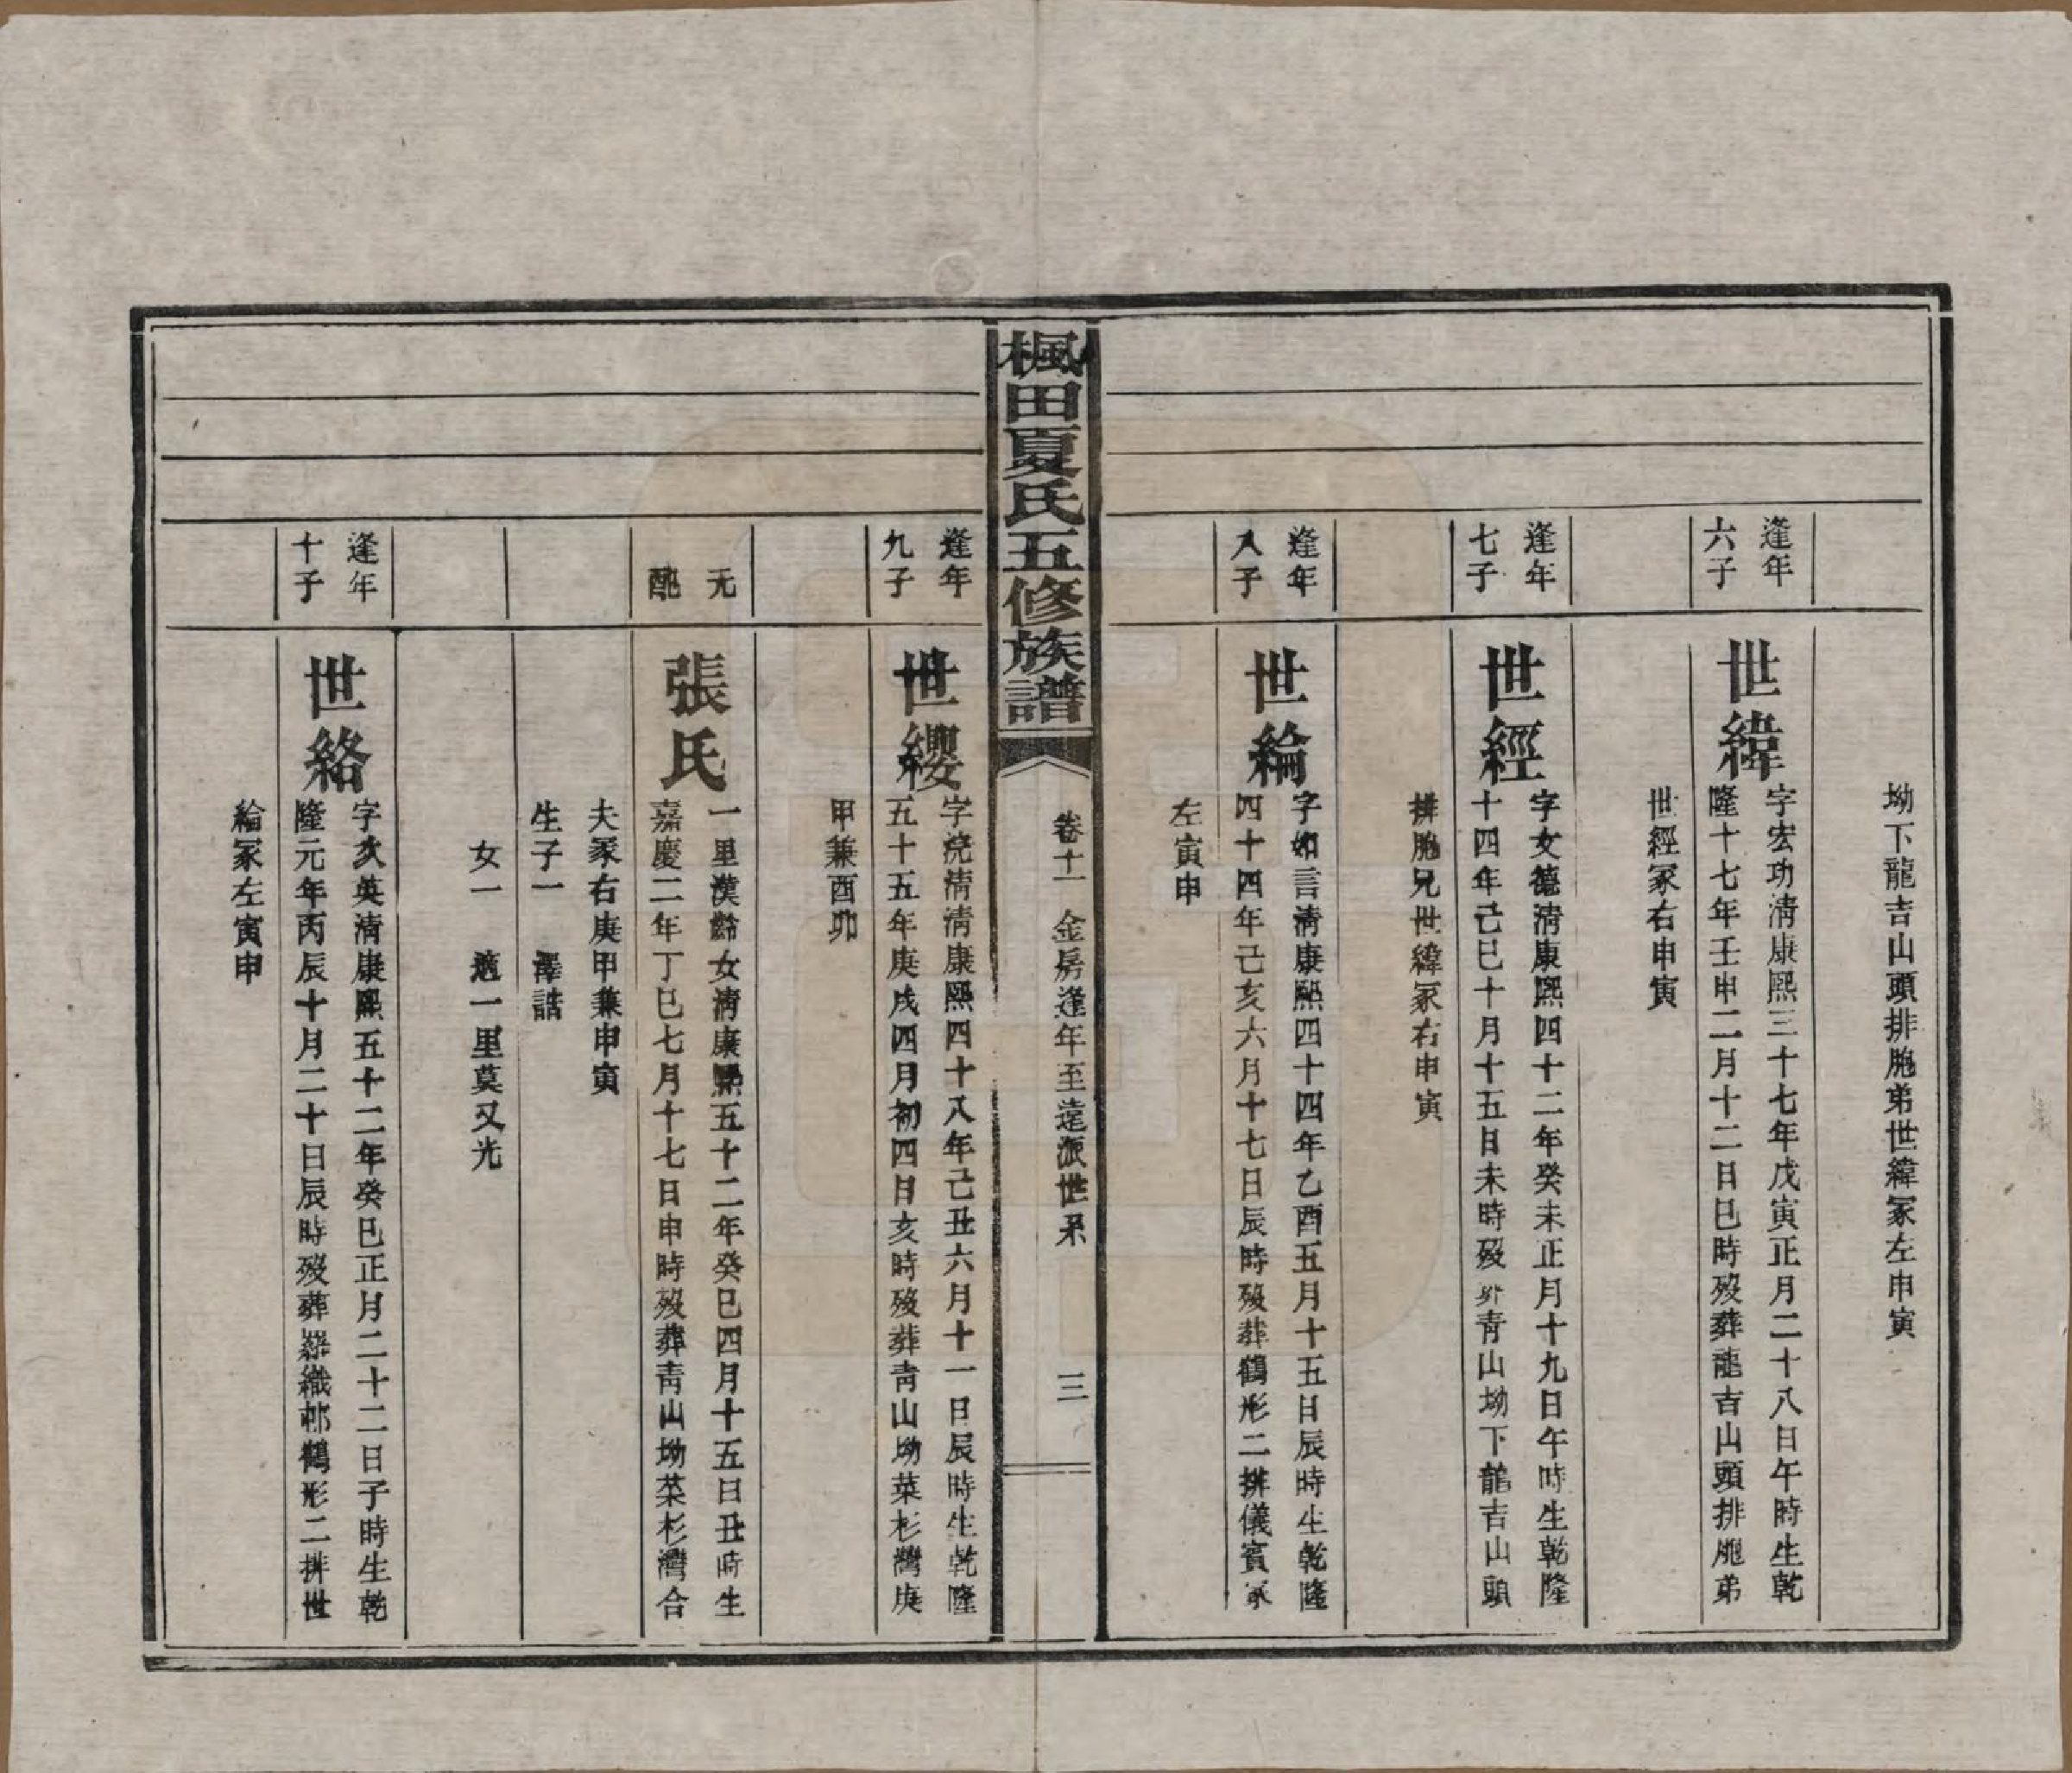 坳下龍吉山頭排胞弟世緯冢左申寅
逢年
六子
世緯
字宏功清康熙三十七年戊寅正月二十八日午時生乾
隆十七年壬申二月十二日巳時歿葬龍吉山頭排胞弟
世經冢右申寅
逢年
七子
世經
字文德清康熙四十二年癸未正月十九日午時生乾隆
十四年己巳十月十五日未時歿葬青山坳下龍吉山頭
排胞兄世緯冢右申寅
逢年
八子
世綸
字如言清康熙四十四年乙酉五月十五日辰時生乾隆
四十四年己亥六月十七日辰時歿葬鶴形二排儀賓冢
左寅申
楓田夏氏五修族譜
卷十一 金房逢年至遠派世系
三
逢年
九子
世纓
字浣清清康熙四十八年己丑六月十一日辰時生乾隆
五十五年庚戌四月初四日亥時歿葬青山坳菜杉灣庚
甲兼酉卯
元
配
張氏
一里漢齡女清康熙五十二年癸巳四月十五日丑時生
嘉慶二年丁巳七月十七日申時歿葬青山坳菜杉灣合
夫冢右庚甲兼申寅
生子一 澤誥
女一 適一里莫又光
逢年
十子
世絡
字亥英清康熙五十二年癸巳正月二十二日子時生乾
隆元年丙辰十月二十日辰時歿葬羅織鄁鶴形二排世
綸冢左寅申